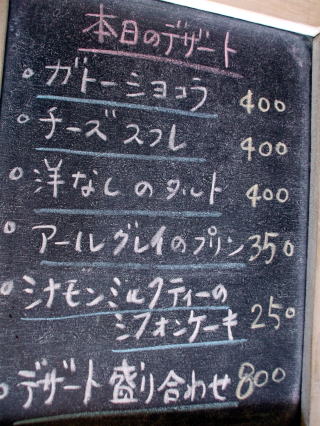 本日のデザート
○ ガトーショコラ 400
○ チーズスフレ 400
○ 洋なしのタルト 400
○ アールグレイのプリン 350
○ シナモンミルクティーの
シフォンケーキ 250
○ デザート盛り合わせ 800